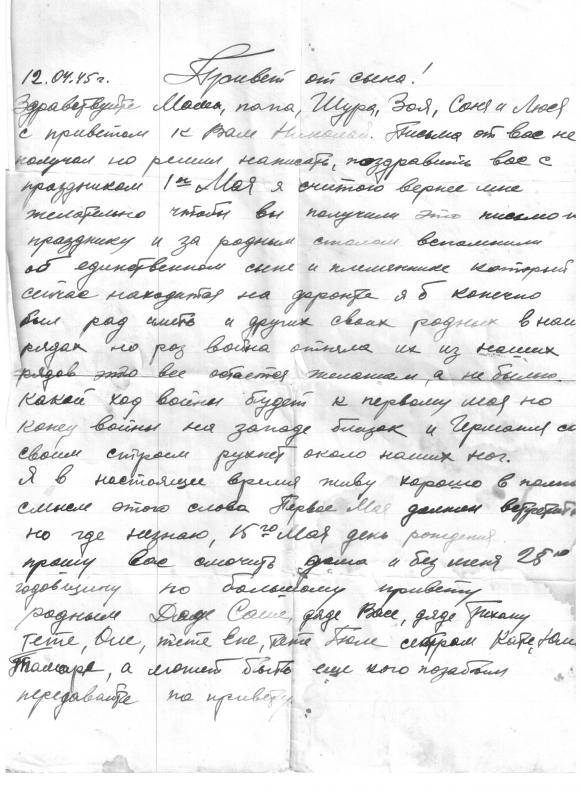 12.04.45г. Привет от сына!
Здравствуйте Мама, папа, Шура, Зоя, Соня и Люся
с приветом к Вам Николай. Письма от вас не
получал но решил написать, поздравить вас с
праздником 1го Мая я считаю вернее мне
желательно чтобы вы получили это письмо к
празднику и за родным столом вспомнили
об единственном сыне и племяннике который
сейчас находится на фронте я б конечно
был рад иметь и других своих родных в наш
рядах но раз война отняла их из наших
рядов это все остается желаньем, а не былью.
Какой ход войны будет к первому мая но
конец войны на западе близок и Германия со
своим строем рухнет около наших ног.
Я в настоящее время живу хорошо в полном
смысле этого слова Первое Мая должен встретить
но где незнаю, 15го Мая день рождения
прошу вас отмочить дома и без меня 25ю
годовщину по большому привету
родным Дяде Саше, дяде Васе, дяде Тихону
тете, Оле, тете Ене, тете Поле сестрам Кате, Юле
Тамаре, а может быть еще кого позабыл
передавайте по привету.